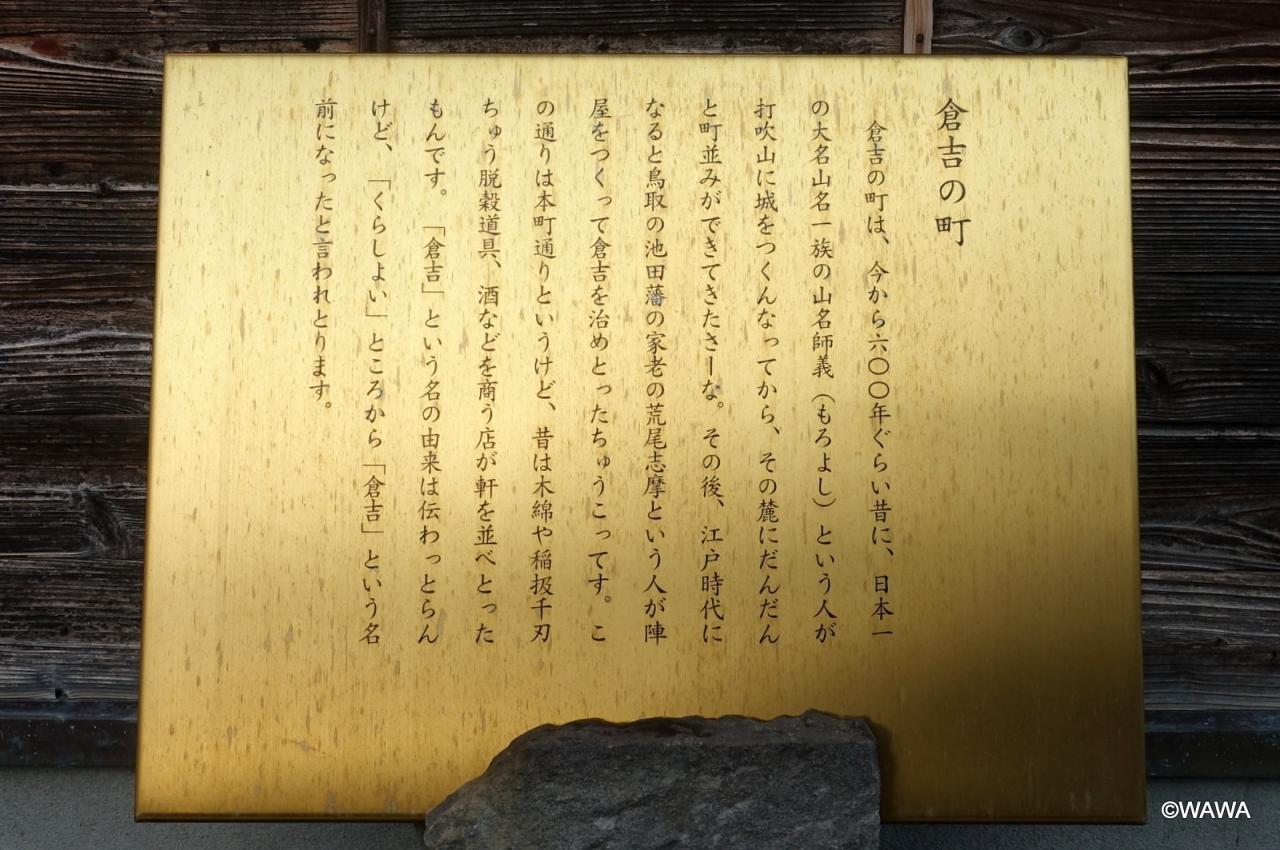 倉吉の町
倉吉の町は、今から六〇〇年ぐらい昔に、日本一
の大名山名一族の山名師義（もろよし）という人が
打吹山に城をつくんなってから、その麓にだんだん
と町並みができてきたさーな。その後、江戸時代に
なると鳥取の池田藩の家老の荒尾志摩という人が陣
屋をつくって倉吉を治めとったちゅうこってす。こ
の通りは本町通りというけど、昔は木綿や稲扱千刃
ちゅう脱穀道具、酒などを商う店が軒を並べとった
もんです。「倉吉」という名の由来は伝わっとらん
けど、「くらしよい」ところから「倉吉」という名
前になったと言われとります。
©WAWA